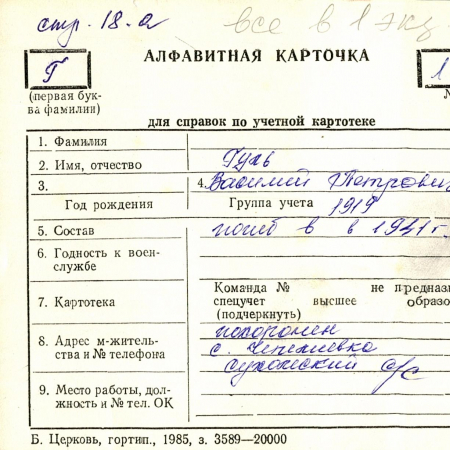 стр. 18-а все в 1 экз.
АЛФАВИТНАЯ КАРТОЧКА
Г 1
(первая бук-
ва фамилии)
для справок по учетной картотеке
1. Фамилия
2. Имя, отчество
3. 4. Василий Петрович
Год рождения Группа учета 1919
5. Состав погиб в в 1941 г.
6. Годность к воен-
службе
Команда № не предназ
7. Картотека спецучет высшее образо
(подчеркнуть)
похоронен
8. Адрес м-житель- с.
ства и № телефона с/с
9. Место работы, дол-
жность и № тел. ОК
Б. Церковь, гортип., 1985, з. 3589—20000